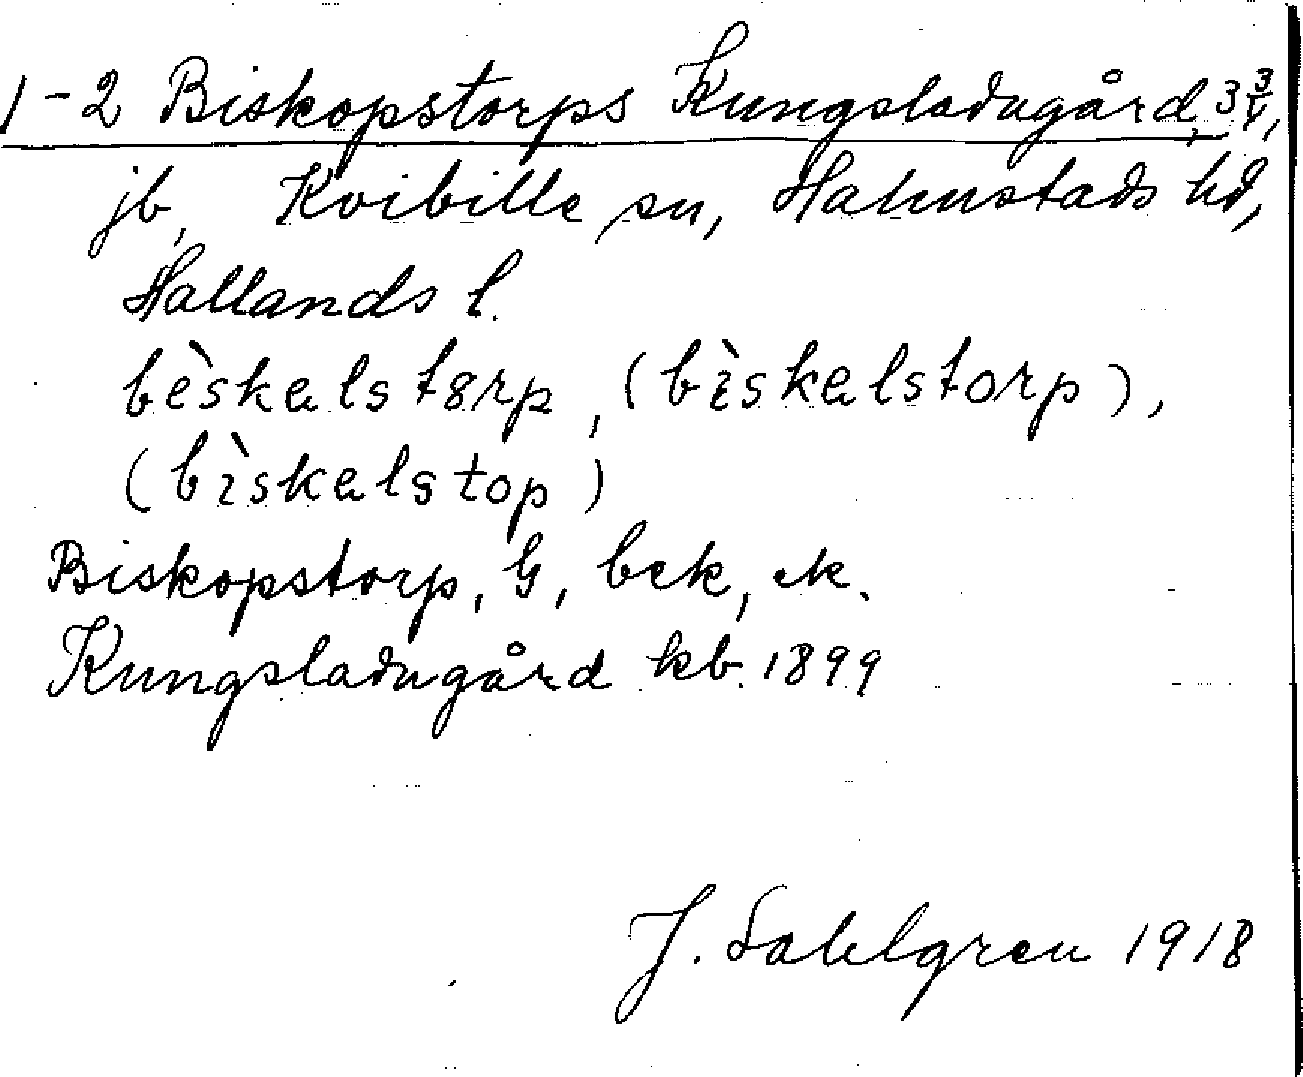 1-2 Biskopstorps Kungsladugård, 3 3/4,
jb, Kvibille sn, Halmstads hd,
Hallands l.
bèskalstørp, (bìskalstorp),
(bìskalstop)
Biskopstorp, G, bek, ek.
Kungsladugård kb. 1899
J. Sahlgren 1918